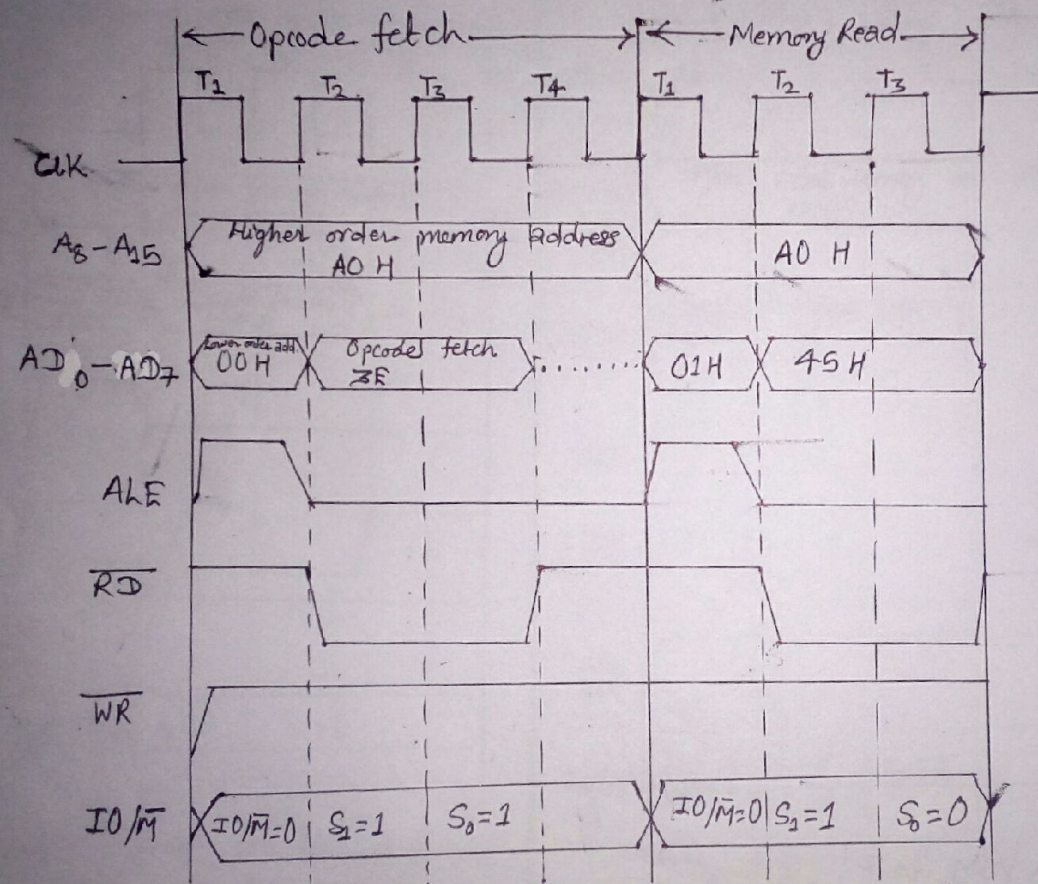 Opcode fetch Memory Read
T1 T2 T3 T4 T1 T2 T3
CLK
A8-A15 Higher order memory address
A0 H A0 H
Lower order add.
AD0-AD7 00H Opcode fetch 01H 45H
3E
ALE
R̅D̅
W̅R̅
IO/M̅ IO/M̅=0 S1=1 S0=1 IO/M̅=0 S1=1 S0=0